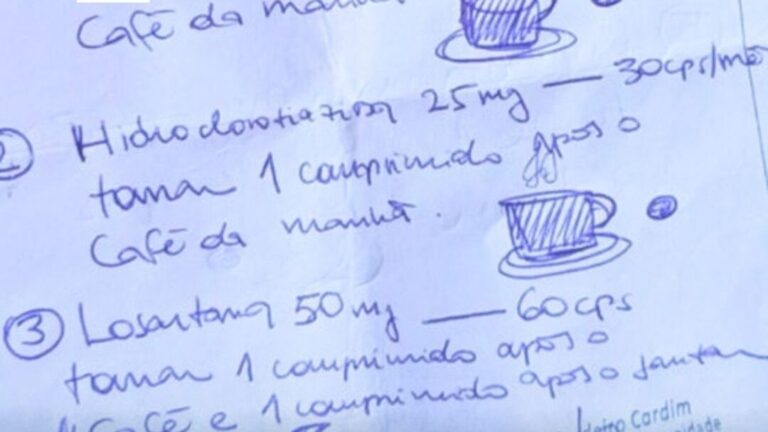 Café da manhã.
2 Hidroclorotiazida 25mg — 30cps/mês
tomar 1 comprimido após o
Café da manhã.
3 Losartana 50mg — 60cps
tomar 1 comprimido após o
Café e 1 comprimido após o jantar
Cardim